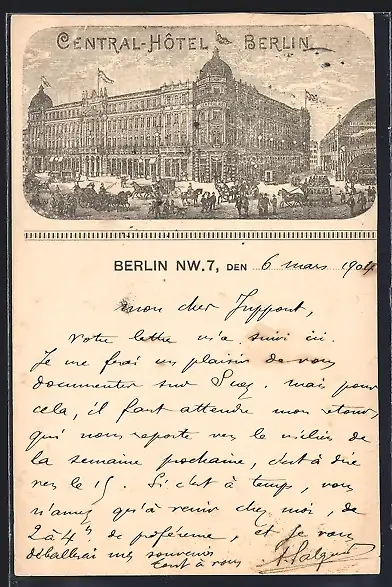 CENTRAL-HÔTEL BERLIN
BERLIN NW.7, DEN 6 mars 1904
mon cher Juppont,
Votre lettre m'a suivi ici.
Je me ferai un plaisir de vous
documenter sur Suez. mais pour
cela, il faut attendre mon retour,
qui nous reporte vers le milieu de
la semaine prochaine, c'est à dire
vers le 15. Si c'est à temps, vous
n'avez qu'à venir chez moi, de
2 à 4h de préférence, et je vous
déballerai mes souvenirs
tout à vous